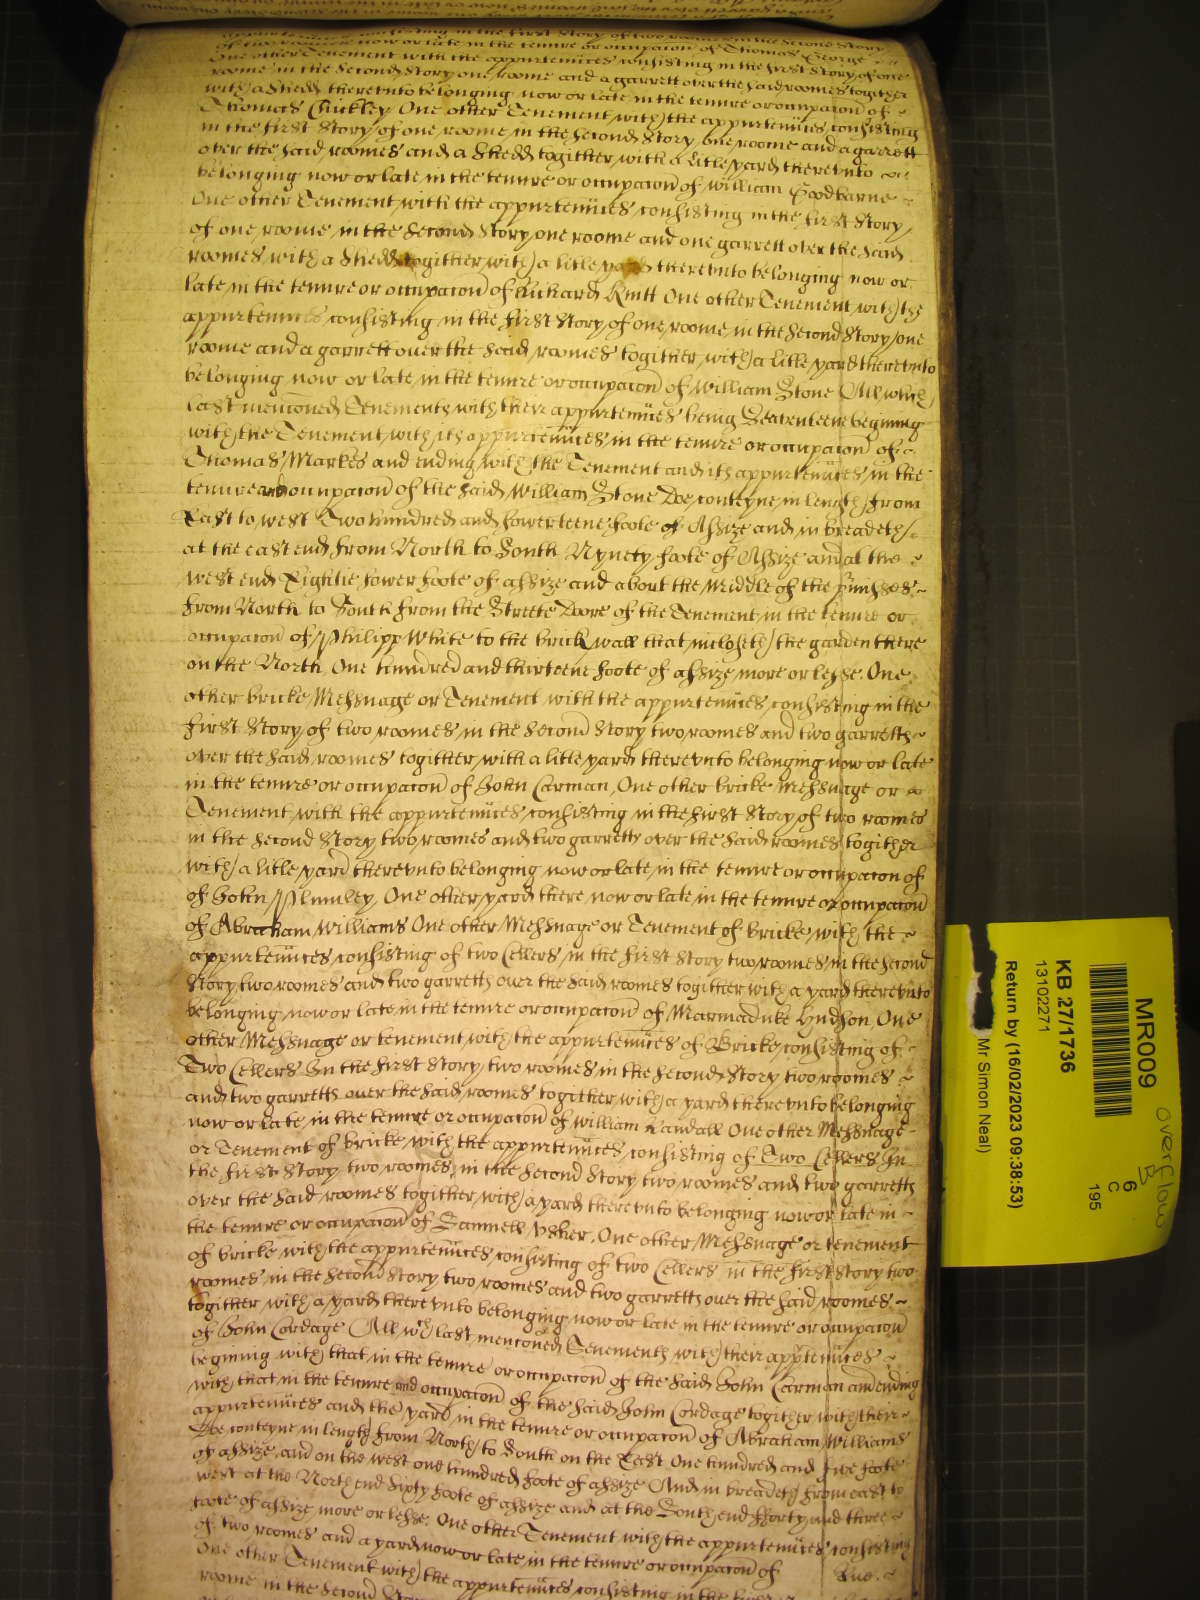 consisting in the first Story of two roomes in the Second Story
of two roomes now or late in the tenure or occupacon of Thomas George
One other Tenement with the appurtenñces consisting in the first Story of one
roome in the Second Story one roome and a garrett over the said roomes togither
with a Shedd therevnto belonging now or late in the tenure or occupacon of
Thomas Chickley One other Tenement with the appurtenñces consisting
in the first Story of one roome in the Second Story one roome and a garrett
over the said roomes and a Shedd togither with a litle yard therevnto
belonging now or late in the tenure or occupacon of William Goodbarne
One other Tenement with the appurtenñces consisting in the first Story
of one roome in the Second Story one roome and one garrett over the said
roomes with a Shedd togither with a litle yard therevnto belonging now or
late in the tenure or occupacon of Richard Knitt One other Tenement with the
appurtenñces consisting in the first Story of one roome in the Second Story one
roome and a garrett over the said roomes togither with a litle yard therevnto
belonging now or late in the tenure or occupacon of William Stone All which
last mencõned Tenements with their appurtenñces being Seaventeene begining
with the Tenement with its appurtenñces in the tenure or occupacon of
Thomas Markes and ending with the Tenement and its appurtenñces in the
tenure and occupacon of the said William Stone Doe conteyne in length from
East to west Two hundred and fowerteene foote of Assize and in breadeth
at the east end from North to South Nynety foote of Assize and at the
west end Eightie fower foote of assize and about the middle of the p̃misses
from North to South from the Streete Doore of the Tenement in the tenure or
occupacon of Philipp White to the brick wall that incloseth the garden there
on the North One hundred and thirteene foote of assize more or lesse One
other bricke Messuage or Tenement with the appurtenñces consisting in the
first Story of two roomes in the Second Story two roomes and two garretts
over the said roomes togither with a litle yard therevnto belonging now or late
in the tenure or occupacon of John Carman One other bricke Messuage or
Tenement with the appurtenñces consisting in the first Story of two roomes
in the Second Story two roomes and two garretts over the said roomes togither
with a litle yard therevnto belonging now or late in the tenure or occupacon of
of John Plumley One other yard there now or late in the tenure or occupacon
of Abraham Williams One other Messuage or Tenement of bricke with the
appurtenñces consisting of two Cellers in the first Story two roomes in the Second
Story two roomes and two garretts over the said roomes togither with a yard therevnto
belonging now or late in the tenure or occupacon of Marmaduke Hudson One
other Messuage or tenement with the appurtenñces of Bricke consisting of
Two Cellers In the first Story two roomes in the Second Story two roomes
and two garretts over the said roomes togither with a yard therevnto belonging
now or late in the tenure or occupacon of William Randall One other Messuage
or Tenement of bricke with the appurtenñces consisting of Two Cellers In
the first Story two roomes in the Second Story two roomes and two garretts
over the said roomes togither with a yard therevnto belonging now or late in
the tenure or occupacon of Samuell Vsher One other Messuage or tenement
of bricke with the appurtenñces consisting of two Cellers in the first Story two
roomes in the Second Story two roomes and two garretts over the said roomes
togither with a yard therevnto belonging now or late in the tenure or occupacon
of John Cordage All wch last mencõned Tenements with their appurtenñces
begining with that in the tenure or occupacon of the said John Carman and ending
with that in the tenure and occupacon of the said John Cordage togither with their
appurtenñces and the yard in the tenure or occupacon of Abraham Williams
Doe conteyne in length from North to South on the East One hundred and five foote
of assize and on the west one hundred foote of assize And in breadeth from east to
west at the North end Sixty foote of assize and at the South end fforty and three
foote of assize more or lesse One other Tenement with the appurtenñces consisting
of two roomes and a yard now or late in the tenure or occupacon of
One other Tenement with the appurtenñces consisting in the first
roome in the Second
MR009
KB 27/1736
13102271
Return by (16/02/2023 09:38:53)
Mr Simon Neal)
6
C
195
overflow
B